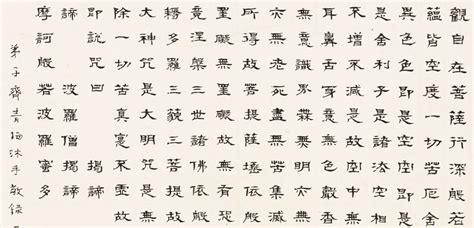 觀自在菩薩行深般若
蘊皆空度一切苦厄舍
異色色即是空空即是
是舍利子是諸法空相
不增不減是故空中無
耳鼻舌身意無色聲香
無意識界無無明亦無
亦無老死盡無苦集滅
所得故菩提薩埵依般
罣礙無罣礙故無有恐
竟涅槃三世諸佛依般
耨多羅三藐三菩提故
大神咒是大明咒是無
除一切苦真實不虛故
即說咒曰 揭諦
諦 波羅僧揭諦
摩訶般若波羅蜜多
弟子齊青沐手敬錄